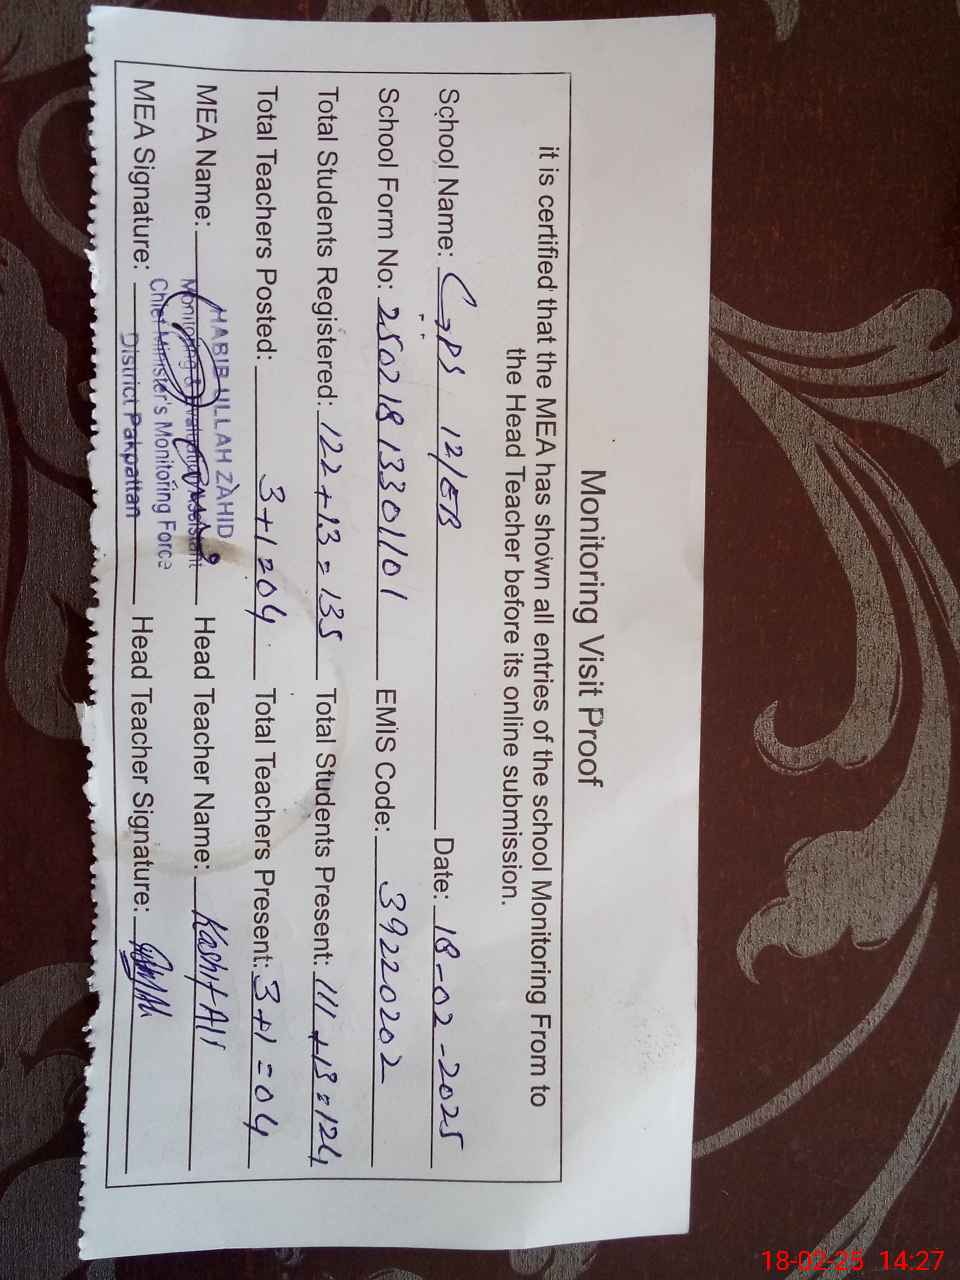 Monitoring Visit Proof
it is certified that the MEA has shown all entries of the school Monitoring From to
the Head Teacher before its online submission.
School Name: GPS 12/EB Date: 18-02-2025
School Form No: 250218 13301101 EMIS Code: 39220202
Total Students Registered: 122+13=135 Total Students Present: 111+13=124
Total Teachers Posted: 3+1=04 Total Teachers Present: 3+1=04
HABIB ULLAH ZAHID
MEA Name: Monitoring & Evaluation Assistant Head Teacher Name: Kashif Ali
Chief Minister's Monitoring Force
MEA Signature: District Pakpattan Head Teacher Signature:
18-02-25 14:27